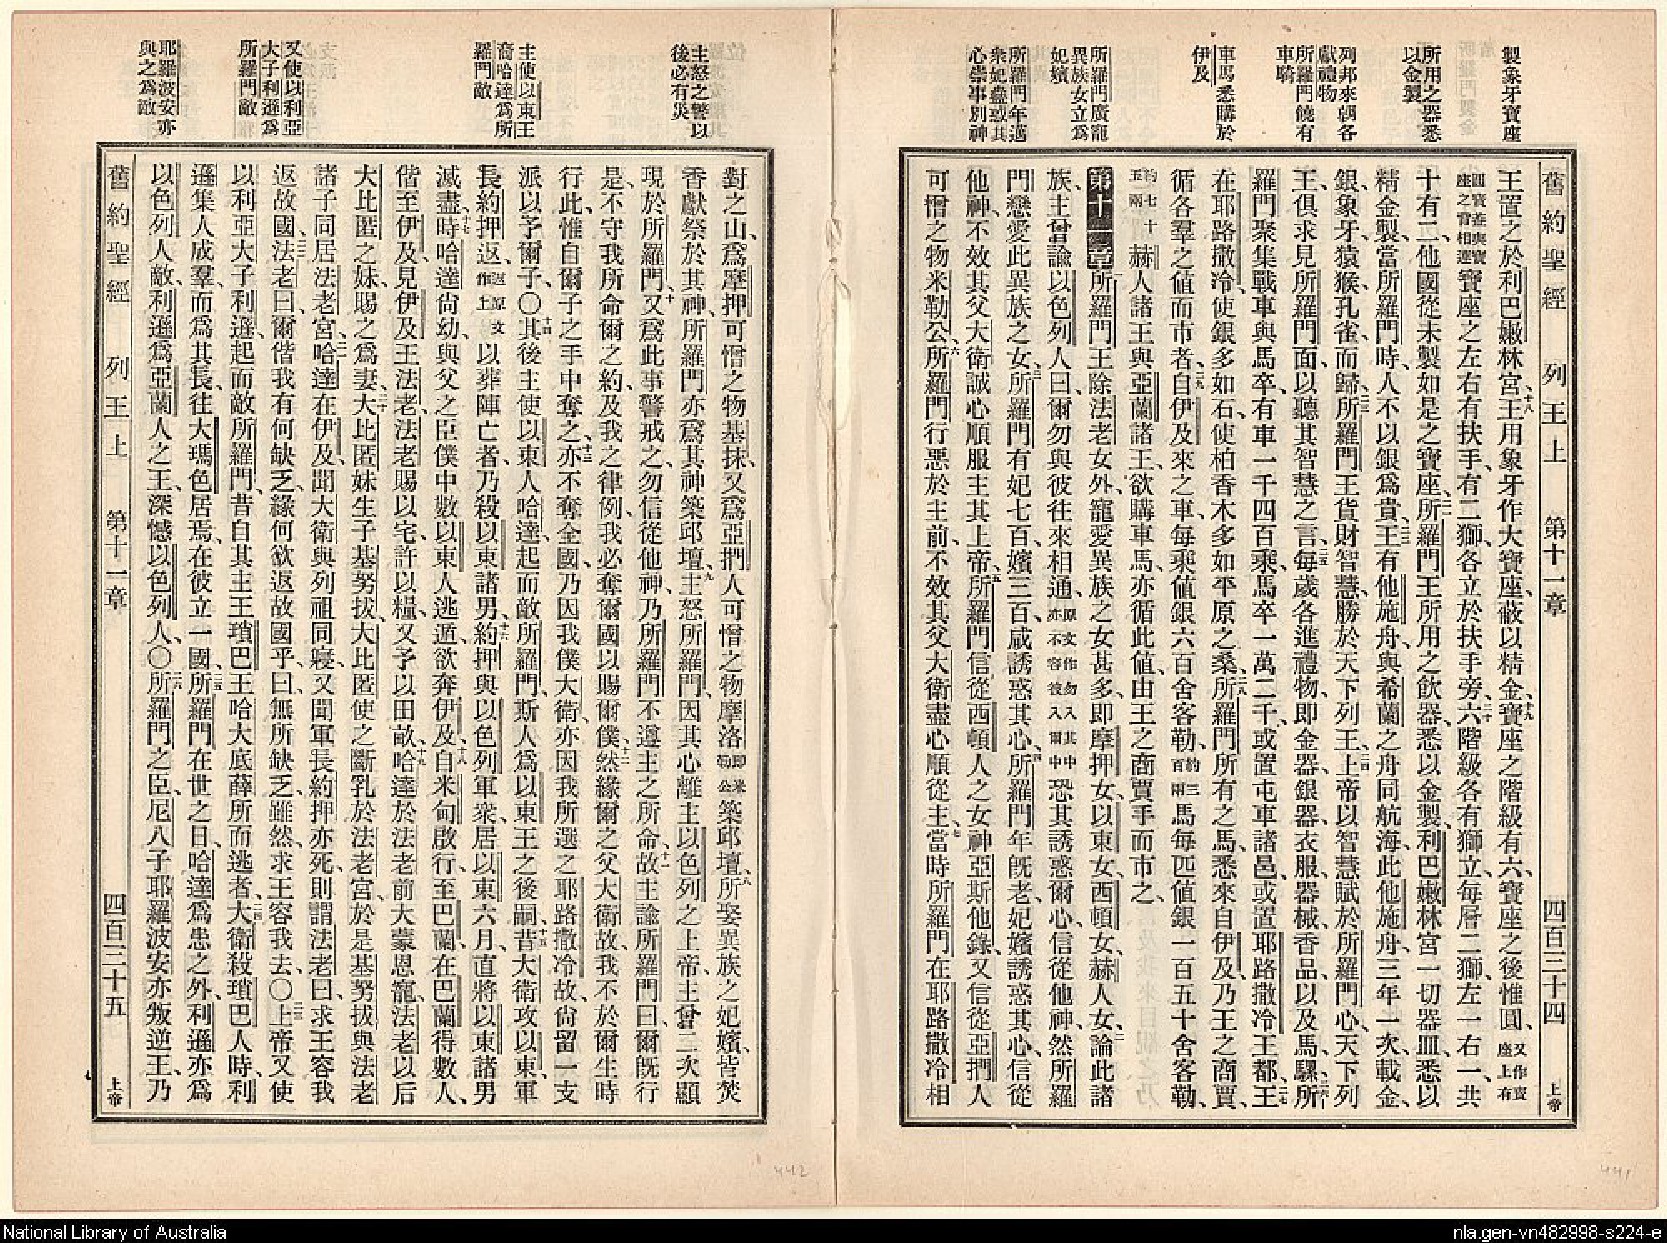 製象牙寶座
所用之器悉
以金製
列邦來朝各
獻禮物
所羅門饒有
車騎
車馬悉購於
伊及
所羅門廣寵
異族女立爲
妃嬪
所羅門年邁
衆妃蠱或其
心崇事別神
舊約聖經 列王上 第十一章 四百三十四 上帝
王置之於利巴嫩林宮、十八王用象牙作大寶座、蔽以精金、十九寶座之階級有六、寶座之後惟圓、又作寶座上有
圓寶蓋與寶座之背相連寶座之左右有扶手、有二獅各立於扶手旁、二十六階級各有獅立、每層二獅、左一右一、共
十有二、他國從未製如是之寶座、二一所羅門王所用之飲器、悉以金製、利巴嫩林宮一切器皿、悉以
精金製、當所羅門時、人不以銀爲貴、二二王有他施舟、與希蘭之舟同航海、此他施舟、三年一次載金、
銀、象牙、猿猴、孔雀而歸、二三所羅門王貨財智慧、勝於天下列王、二四上帝以智慧賦於所羅門心、天下列
王、俱求見所羅門面、以聽其智慧之言、二五每歲各進禮物、即金器、銀器、衣服、器械、香品、以及馬騾、二六所
羅門聚集戰車與馬卒、有車一千四百乘、馬卒一萬二千、或置屯車諸邑、或置耶路撒冷王都、二七王
在耶路撒冷、使銀多如石、使柏香木多如平原之桑、二八所羅門所有之馬、悉來自伊及、乃王之商賈、
循各羣之值而市者、二九自伊及來之車、每乘值銀六百舍客勒、約三百兩馬每匹值銀一百五十舍客勒、
約七十五兩赫人諸王與亞蘭諸王、欲購車馬、亦循此值、由王之商賈手而市之、
第十一章所羅門王除法老女外、寵愛異族之女甚多、即摩押女、以東女、西頓女、赫人女、二論此諸
族、主曾諭以色列人曰、爾勿與彼往來相通、原文作勿入其中亦不容彼入爾中恐其誘惑爾心信從他神、然所羅
門戀愛此異族之女、三所羅門有妃七百、嬪三百、咸誘惑其心、四所羅門年旣老、妃嬪誘惑其心、信從
他神、不效其父大衛誠心順服主其上帝、五所羅門信從西頓人之女神亞斯他錄、又信從亞捫人
可憎之物米勒公、六所羅門行惡於主前、不效其父大衛盡心順從主、七當時所羅門在耶路撒冷相
主怒之警以
後必有災
主使以東王
裔哈達爲所
羅門敵
又使以利亞
大子利遜爲
所羅門敵
耶羅波安亦
與之爲敵
對之山、爲摩押可憎之物基抹、又爲亞捫人可憎之物摩洛、即米勒公築邱壇、八所娶異族之妃嬪、皆焚
香獻祭於其神、所羅門亦爲其神築邱壇、九主怒所羅門、因其心離主以色列之上帝、主曾二次顯
現於所羅門、十又爲此事警戒之、勿信從他神、乃所羅門不遵主之所命、十一故主諭所羅門曰、爾旣行
是、不守我所命爾之約、及我之律例、我必奪爾國以賜爾僕、十二然緣爾之父大衛故、我不於爾生時
行此、惟自爾子之手中奪之、十三亦不奪全國、乃因我僕大衛、亦因我所選之耶路撒冷故、尙留一支
派以予爾子、〇十四其後主使以東人哈達起而敵所羅門、斯人爲以東王之後嗣、十五昔大衛攻以東、軍
長約押返、返原文作上以葬陣亡者、乃殺以東諸男、十六約押與以色列軍衆、居以東六月、直將以東諸男
滅盡、十七時哈達尙幼、與父之臣僕中數以東人逃遁、欲奔伊及、十八自米甸啟行、至巴蘭、在巴蘭得數人、
偕至伊及、見伊及王法老、法老賜以宅、許以糧、又予以田畝、十九哈達於法老前大蒙恩寵、法老以后
大比匿之妹、賜之爲妻、二十大比匿妹生子基努拔、大比匿使之斷乳於法老宮、於是基努拔與法老
諸子同居法老宮、二一哈達在伊及、聞大衛與列祖同寢、又聞軍長約押亦死、則謂法老曰、求王容我
返故國、二二法老曰、爾偕我有何缺乏、緣何欲返故國乎、曰、無所缺乏、雖然、求王容我去、〇二三上帝又使
以利亞大子利遜、起而敵所羅門、昔自其主王瑣巴王哈大底薛所而逃者、二四大衛殺瑣巴人時、利
遜集人成羣、而爲其長、往大瑪色居焉、在彼立一國、二五所羅門在世之日、哈達爲患之外、利遜亦爲
以色列人敵、利遜爲亞蘭人之王、深憾以色列人、〇二六所羅門之臣、尼八子耶羅波安亦叛逆王、乃
舊約聖經 列王上 第十一章 四百三十五 上帝
442
441
National Library of Australia
nla.gen-vn482998-s224-e